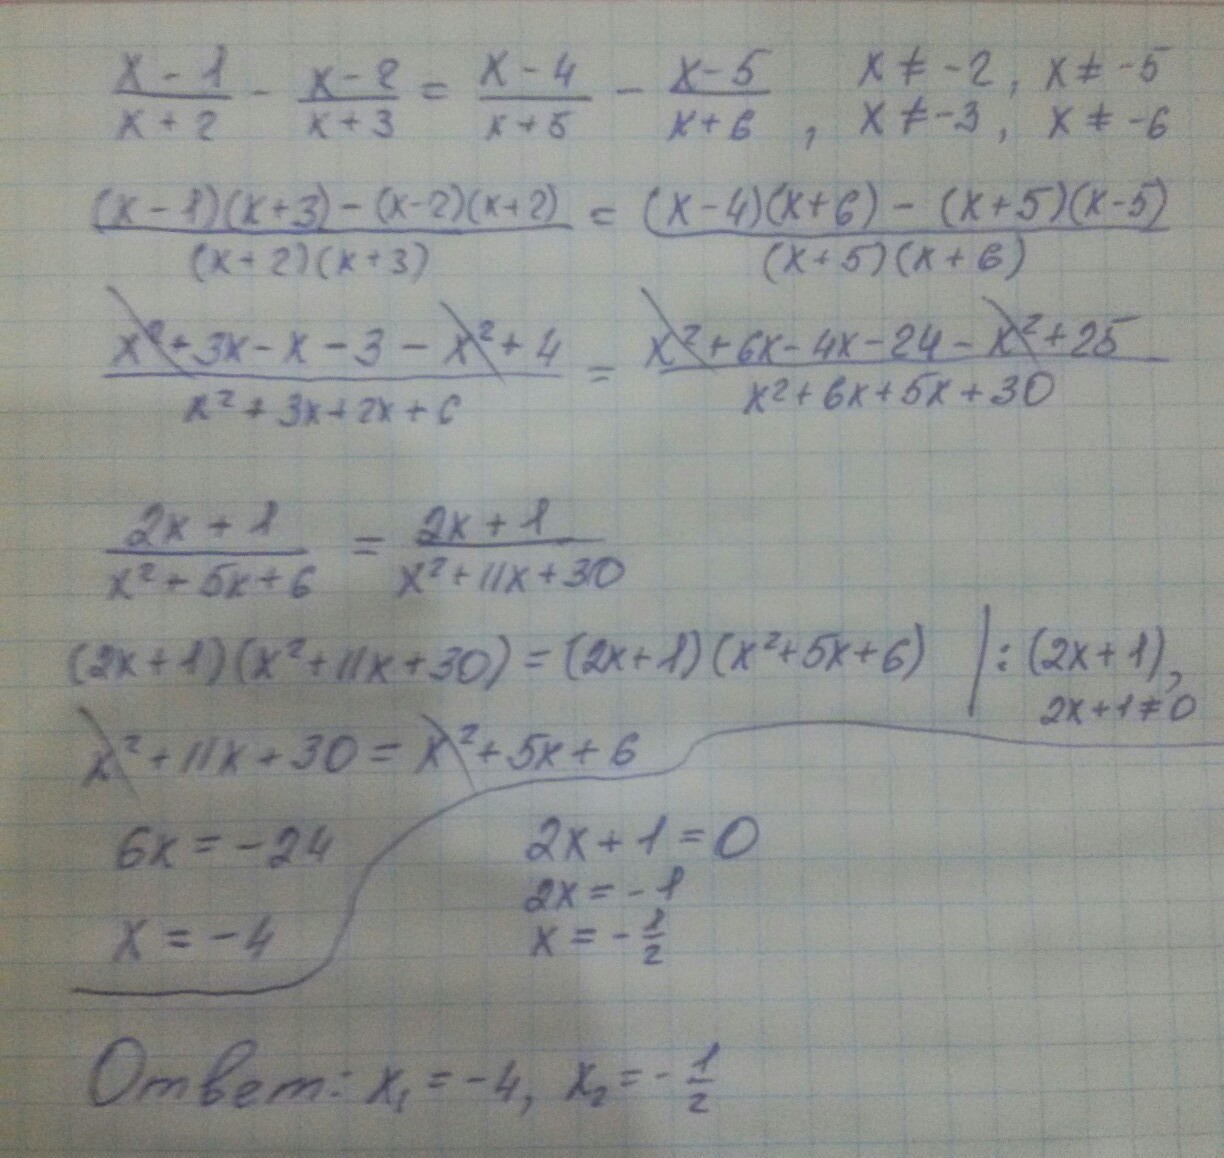 (x-1)/(x+2) - (x-2)/(x+3) = (x-4)/(x+5) - (x-5)/(x+6), x ≠ -2, x ≠ -5
x ≠ -3, x ≠ -6
((x-1)(x+3)-(x-2)(x+2))/((x+2)(x+3)) = ((x-4)(x+6)-(x+5)(x-5))/((x+5)(x+6))
(x²+3x-x-3-x²+4)/(x²+3x+2x+6) = (x²+6x-4x-24-x²+25)/(x²+6x+5x+30)
(2x+1)/(x²+5x+6) = (2x+1)/(x²+11x+30)
(2x+1)(x²+11x+30)=(2x+1)(x²+5x+6) | :(2x+1),
2x+1≠0
x²+11x+30=x²+5x+6
6x=-24
x=-4
2x+1=0
2x=-1
x=-1/2
Ответ: x₁=-4, x₂=-1/2